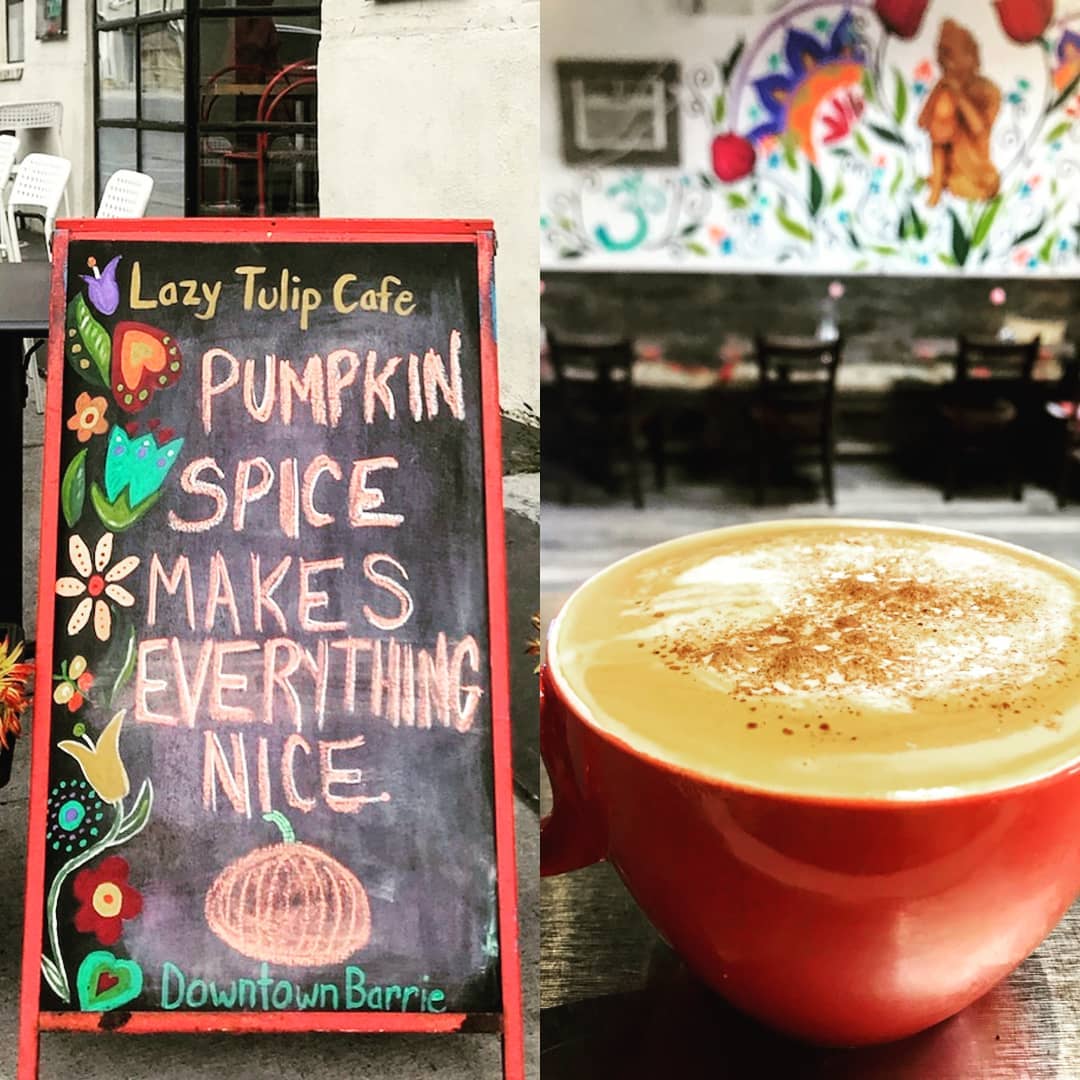 Lazy Tulip Cafe
PUMPKIN
SPICE
MAKES
EVERYTHING
NICE
Downtown Barrie
ॐ